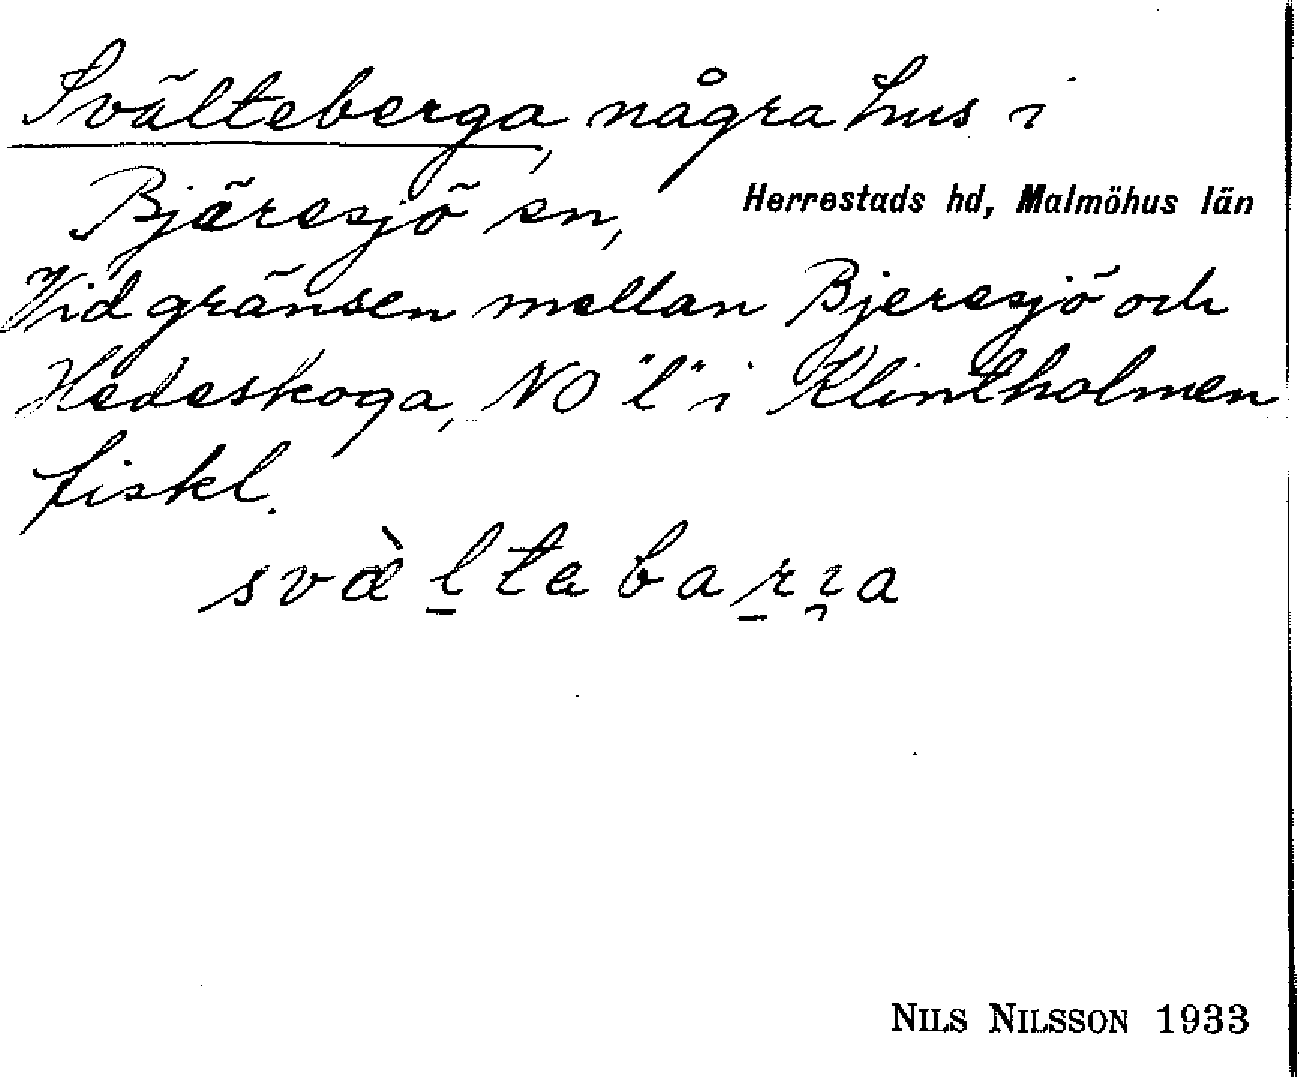 Svälteberga, några hus i
Bjäresjö sn, Herrestads hd, Malmöhus län
Vid gränsen mellan Bjeresjö och
Hedeskoga, NO "l" i Klintholmen
fiskl.
NILS NILSSON 1933